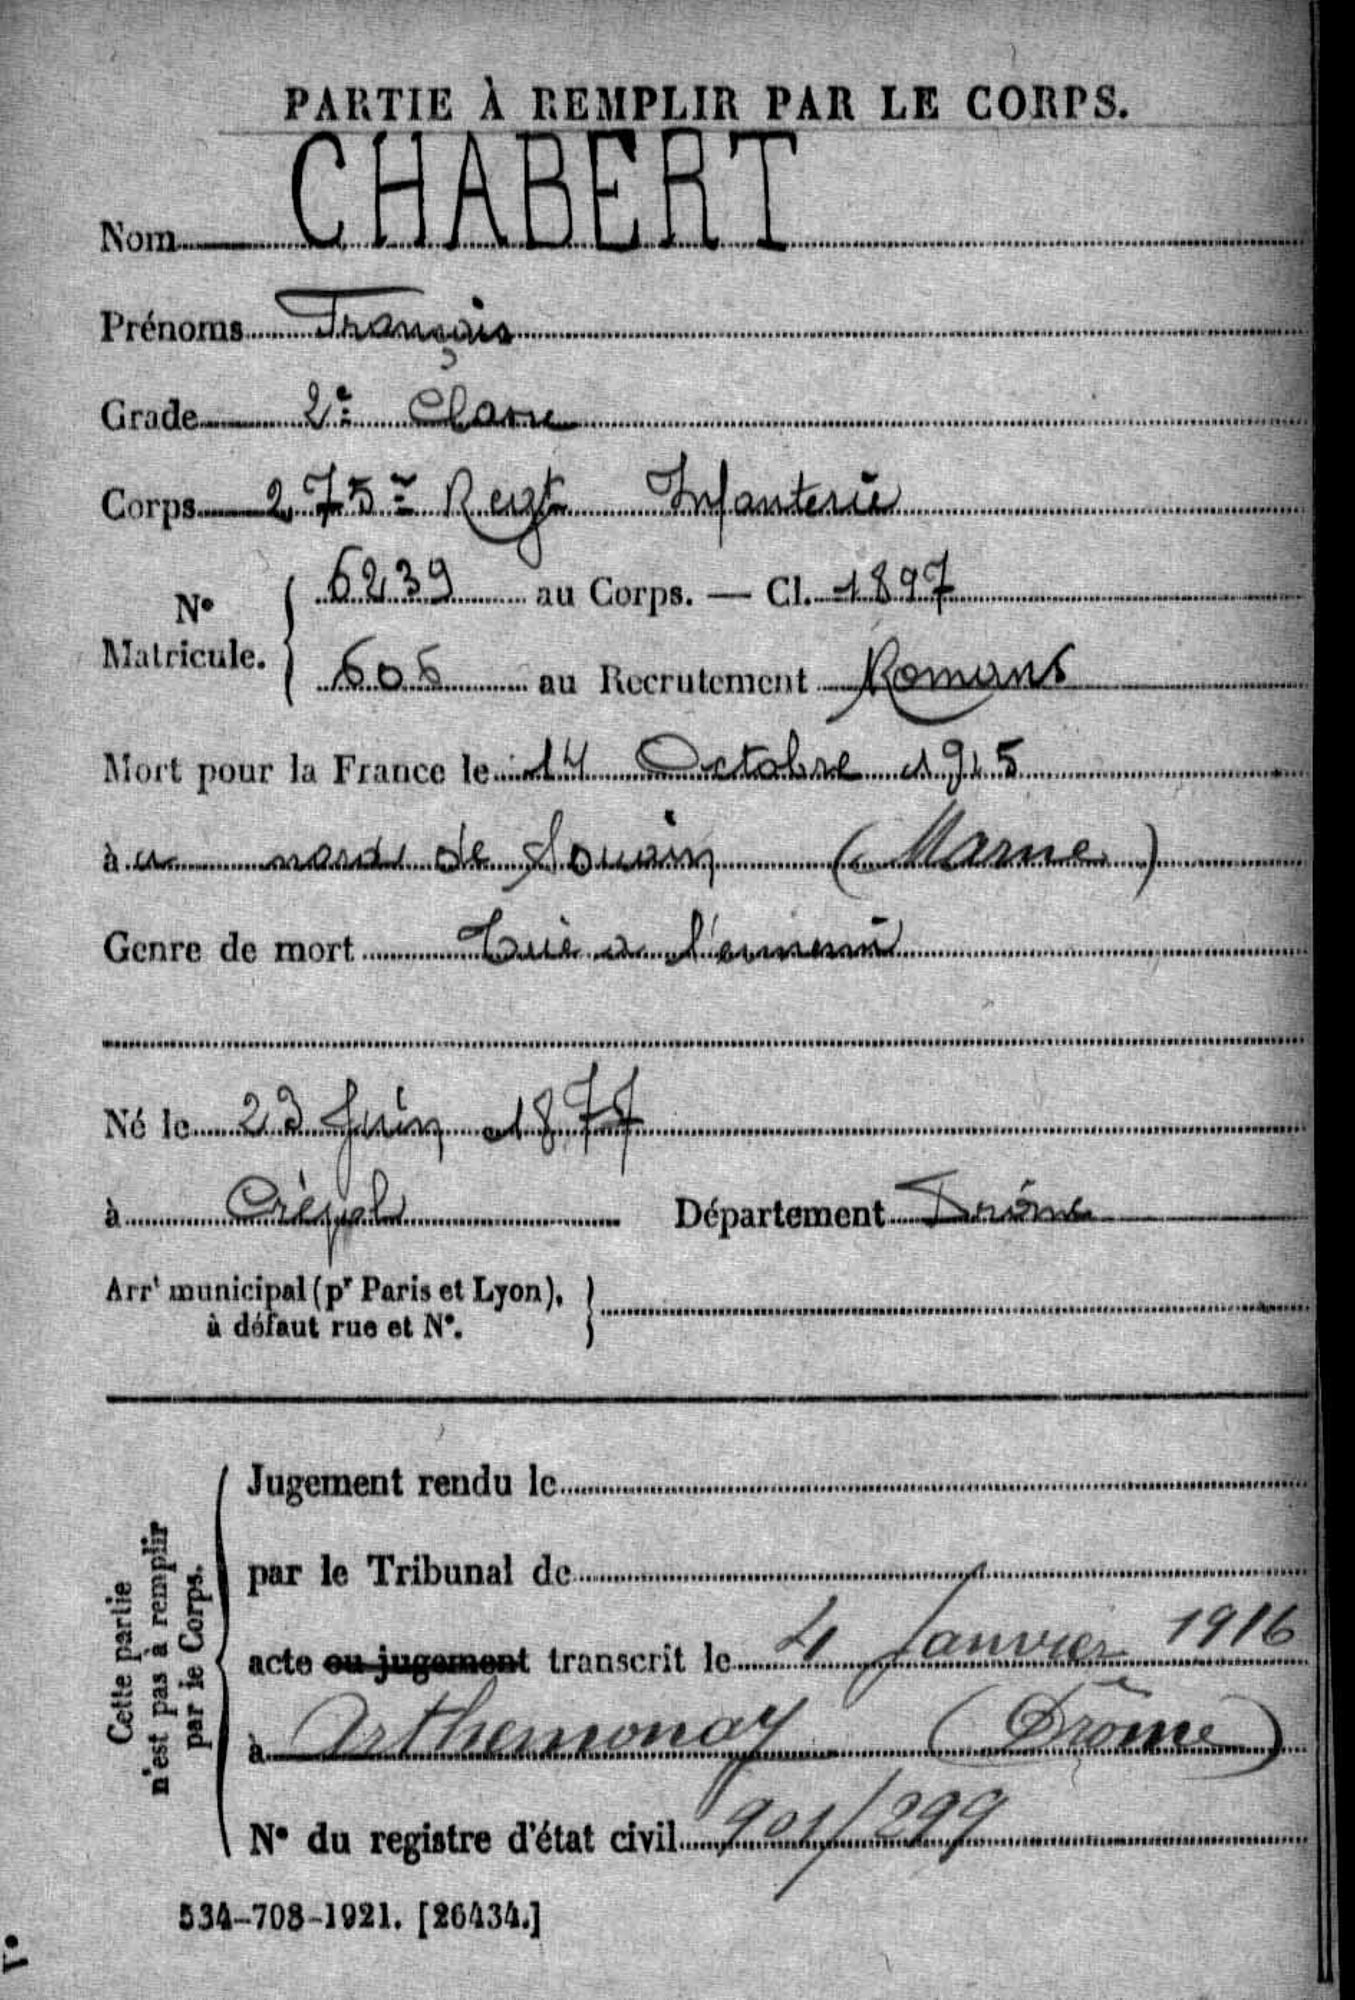 PARTIE À REMPLIR PAR LE CORPS.
Nom CHABERT
Prénoms François
Grade 2e Classe
Corps 275e Regt Infanterie
N° Matricule. 6239 au Corps. — Cl. 1897
606 au Recrutement Romans
Mort pour la France le 14 Octobre 1915
à u nord de Souain (Marne)
Genre de mort Tué a l'ennemi
Né le 23 Juin 1877
à Crépol Département Drôme
Arrt municipal (pr Paris et Lyon),
à défaut rue et N°.
Cette partie
n'est pas à remplir
par le Corps.
Jugement rendu le
par le Tribunal de
acte ou jugement transcrit le 4 Janvier 1916
à Arthemonay (Drôme)
N° du registre d'état civil 901/299
534-708-1921. [26434.]